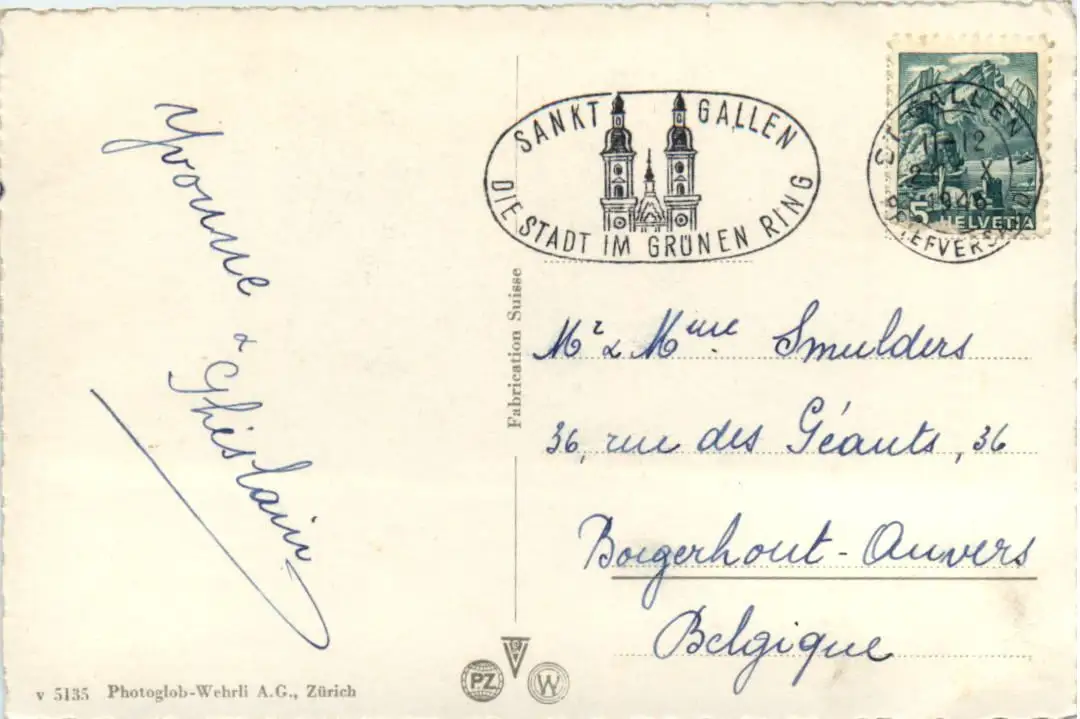 Yvonne & Ghislain
SANKT GALLEN
DIE STADT IM GRÜNEN RING
ST. GALLEN 1
11-12
X
1948
BRIEFVERSAND
5 HELVETIA
Fabrication Suisse
Mr & Mme Smulders
36, rue des Géants, 36
Borgerhout-Anvers
Belgique
v 5135 Photoglob-Wehrli A.G., Zürich
PZ
W